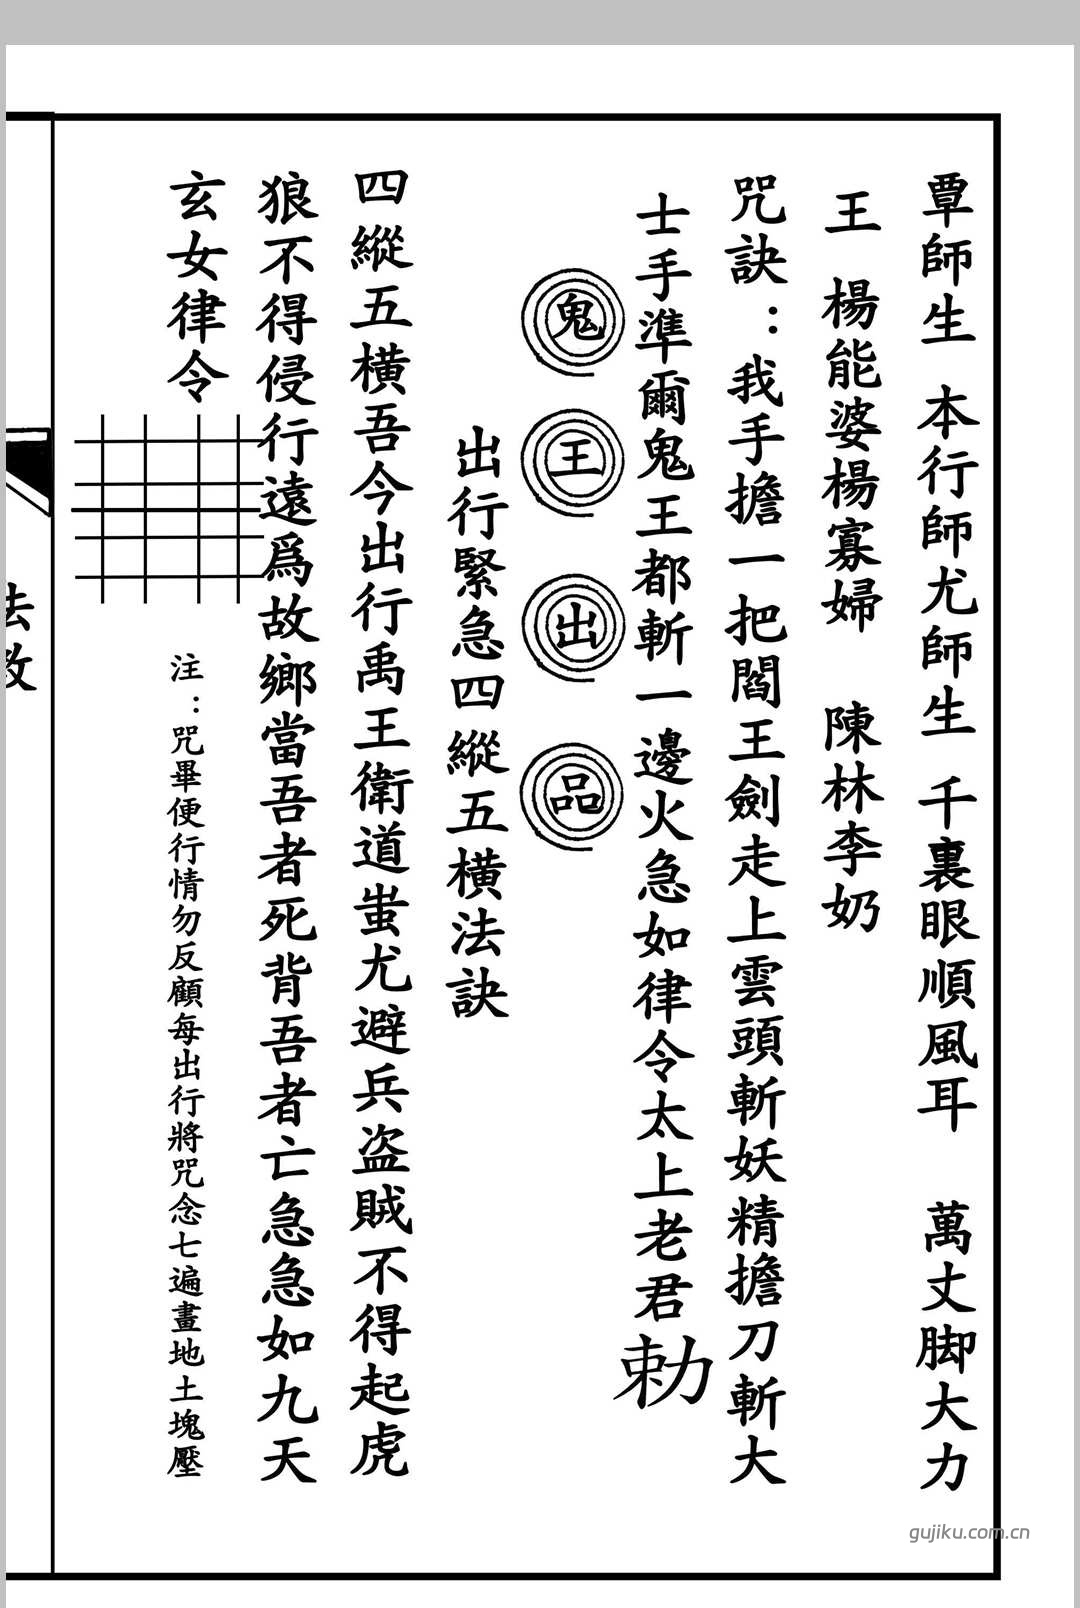 覃師生　本行師尤師生　千裏眼順風耳　萬丈脚大力
王　楊能婆楊寡婦　陳林李奶
咒訣：我手擔一把閻王劍走上雲頭斬妖精擔刀斬大
士手準爾鬼王都斬一邊火急如律令太上老君勅
鬼王出品
出行緊急四縱五橫法訣
四縱五橫吾今出行禹王衛道蚩尤避兵盗賊不得起虎
狼不得侵行遠爲故鄉當吾者死背吾者亡急急如九天
玄女律令
注：咒畢便行情勿反顧每出行將咒念七遍畫地土塊壓
法教
gujiku.com.cn